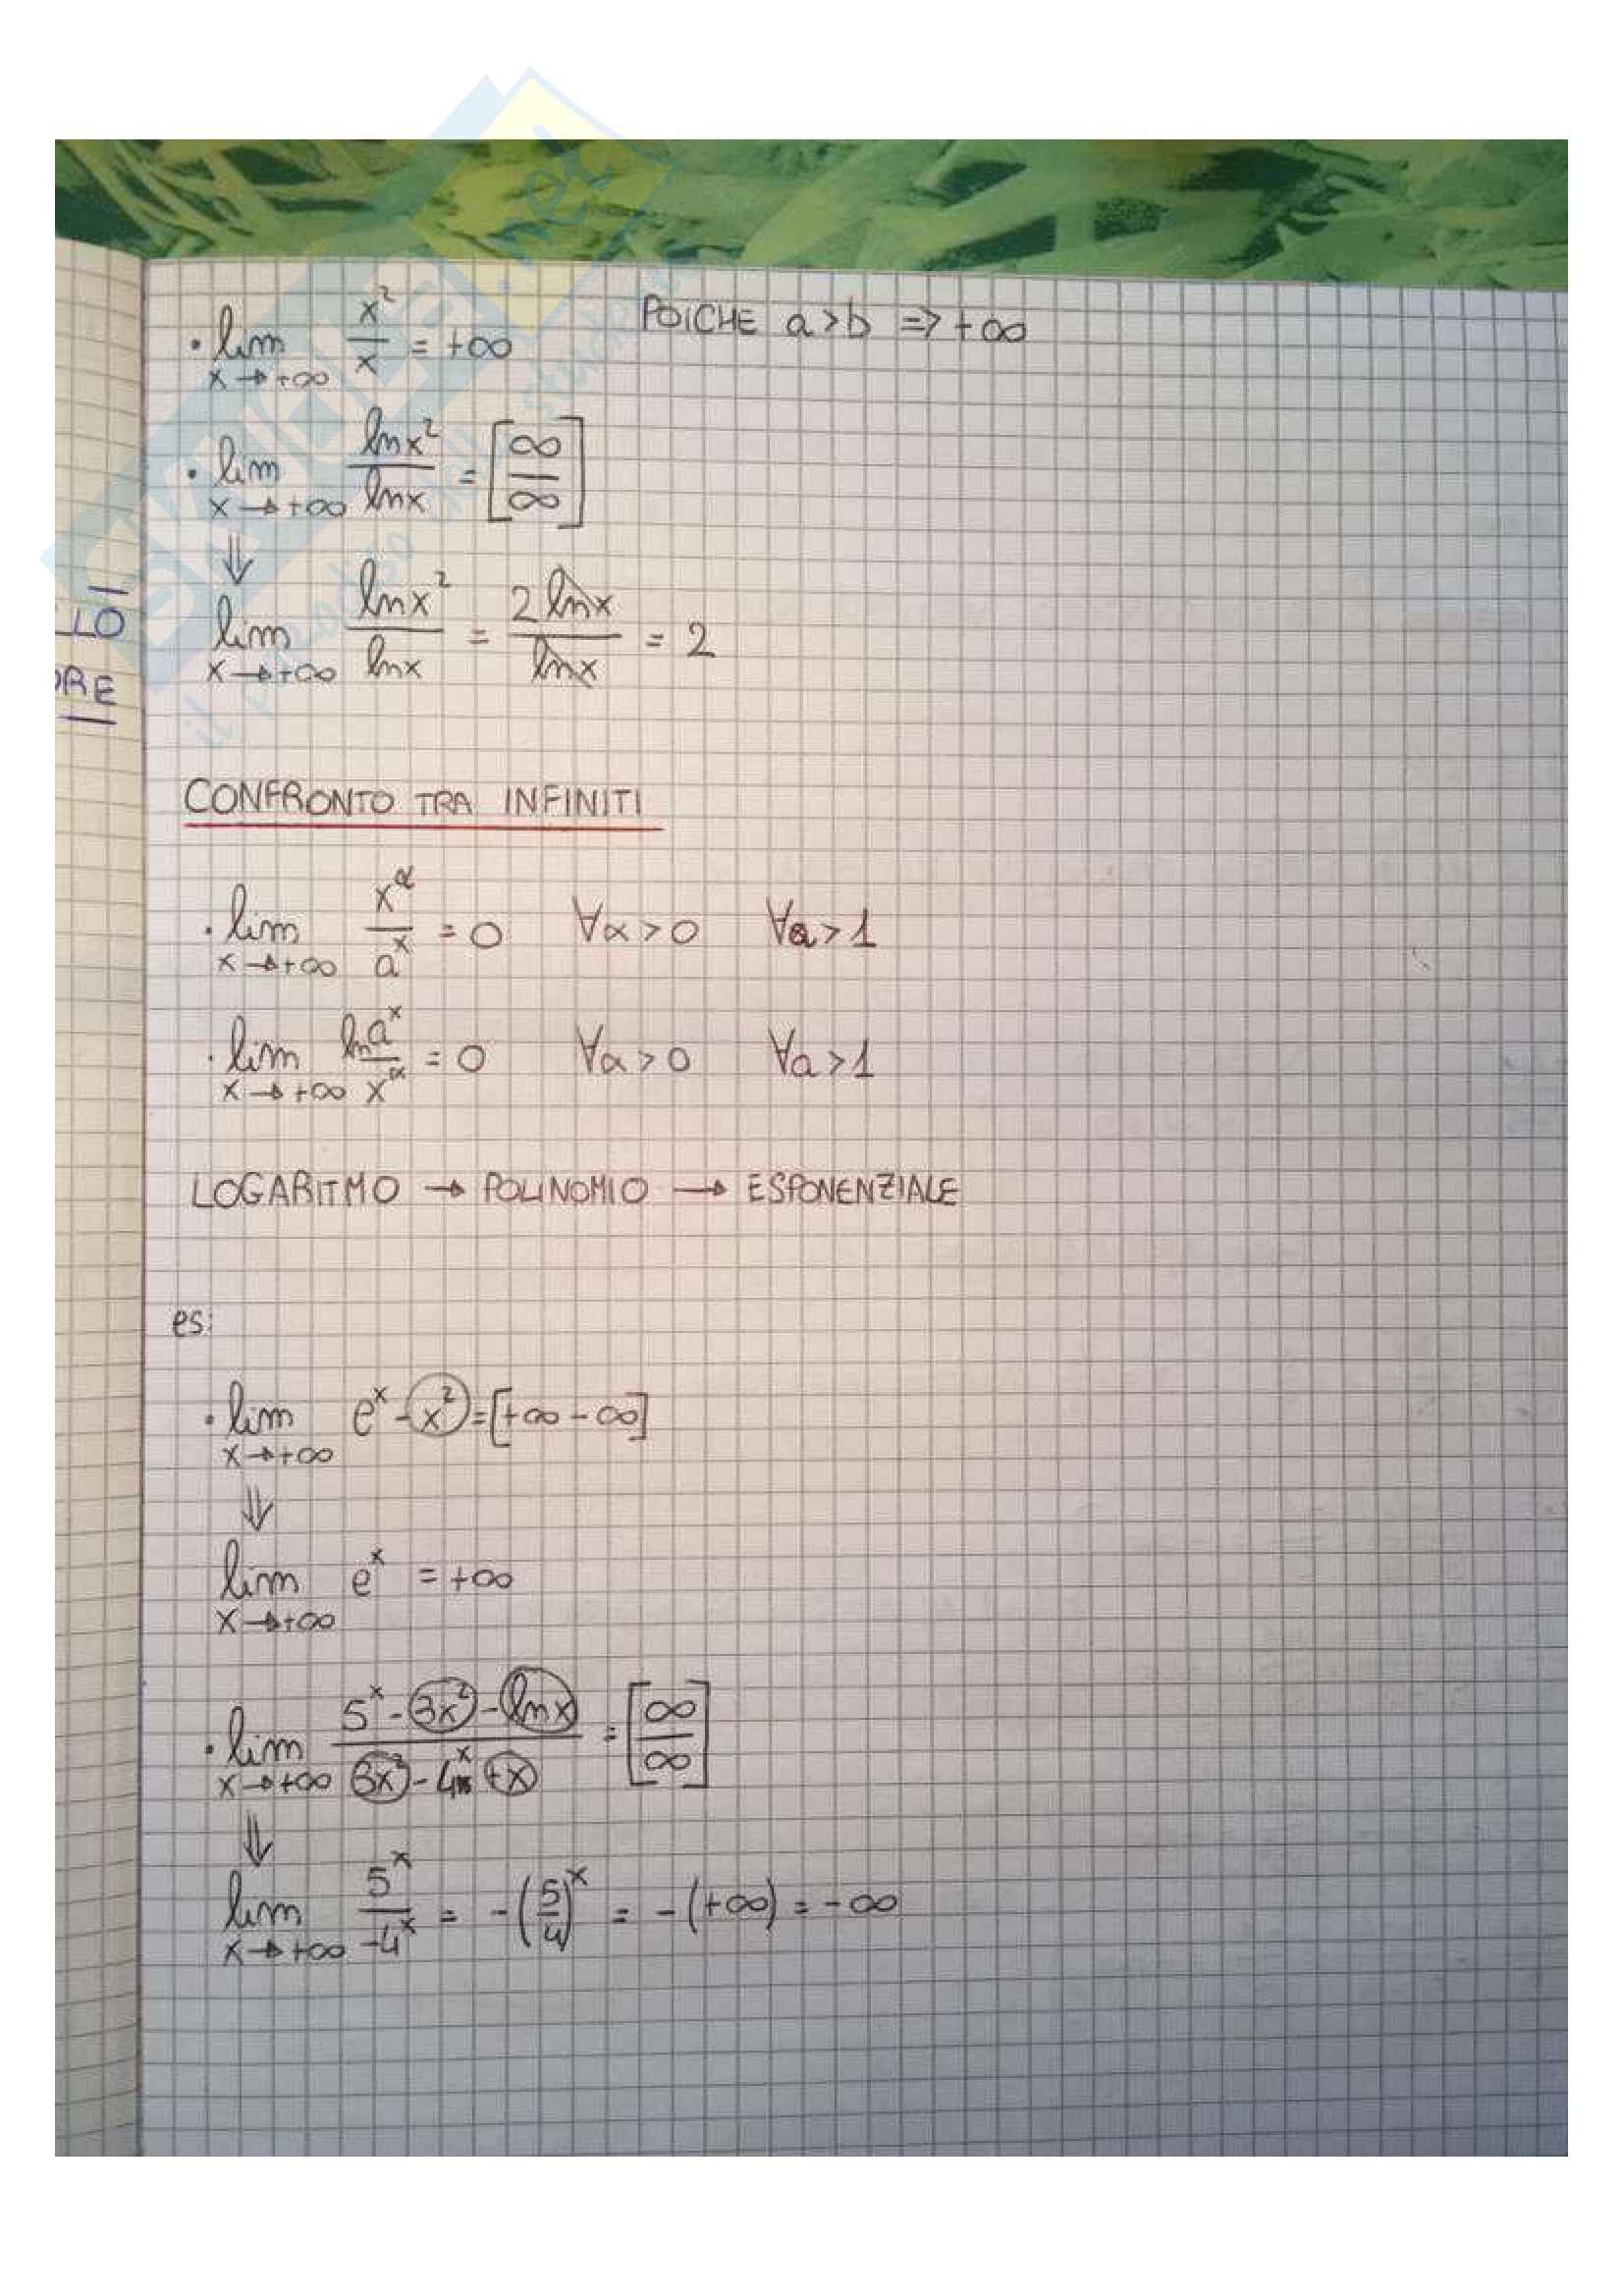 • lim x→+∞ x²/x = +∞   POICHE a>b => +∞
• lim x→+∞ lnx²/lnx = [∞/∞]
⇓
lim x→+∞ lnx²/lnx = 2lnx/lnx = 2
LLO
ORE
CONFRONTO TRA INFINITI
• lim x→+∞ x^α/a^x = 0   ∀α>0   ∀a>1
• lim x→+∞ lna^x/x^α = 0   ∀α>0   ∀a>1
LOGARITMO → POLINOMIO → ESPONENZIALE
es:
• lim x→+∞ e^x - x² = [+∞ - ∞]
⇓
lim x→+∞ e^x = +∞
• lim x→+∞ (5^x - 3x² - lnx)/(3x² - 4^x + x) = [∞/∞]
⇓
lim x→+∞ 5^x/-4^x = -(5/4)^x = -(+∞) = -∞